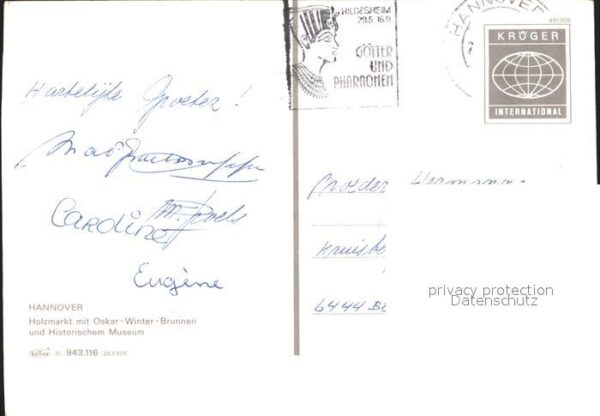 Hartelijke Groeten!
Caroline
Eugène
HANNOVER
Holzmarkt mit Oskar-Winter-Brunnen
und Historischem Museum
Krüger 31 943.116 263 606
HILDESHEIM
29.5 16.9.
GÖTTER
UND
PHARAONEN
HANNOVER
491 009
KRÜGER
INTERNATIONAL
Broeder Hermann
6444
privacy protection
Datenschutz